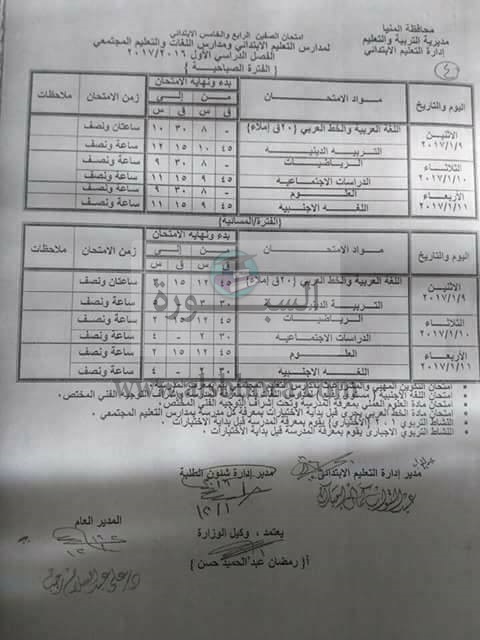 محافظة المنيا
مديرية التربية والتعليم
إدارة التعليم الابتدائي
امتحان الصفين الرابع والخامس الابتدائي
لمدارس التعليم الابتدائي ومدارس اللغات والتعليم المجتمعي
الفصل الدراسي الأول ٢٠١٧/٢٠١٦
{ الفترة الصباحية }
٤
اليوم والتاريخ مواد الامتحان بدء ونهاية الامتحان زمن الامتحان ملاحظات
من إلى
ق س ق س
الاثنين ٢٠١٧/١/٩ اللغه العربيه والخط العربي {٢٠ق إملاء} - ٨ ٣٠ ١٠ ساعتان ونصف
التربيه الدينيه ٤٥ ١٠ ١٥ ١٢ ساعة ونصف
الثلاثاء ٢٠١٧/١/١٠ الرياضيات - ٨ ٣٠ ٩ ساعة ونصف
الدراسات الاجتماعيه ٤٥ ٩ ١٥ ١١ ساعة ونصف
الأربعاء ٢٠١٧/١/١١ العلوم - ٨ ٣٠ ٩ ساعة ونصف
اللغه الاجنبيه ٤٥ ٩ ١٥ ١١ ساعة ونصف
{الفترة/المسائية}
اليوم والتاريخ مواد الامتحان بدء ونهاية الامتحان زمن الامتحان ملاحظات
من إلى
ق س ق س
الاثنين ٢٠١٧/١/٩ اللغه العربيه والخط العربي {٢٠ق إملاء} ٤٥ ١٢ ١٥ ساعتان ونصف
التربية الدينية ٣٠ ٣ ساعة ونصف
الثلاثاء ٢٠١٧/١/١٠ الرياضيات ٤٥ ١٢ ساعة ونصف
الدراسات الاجتماعيه ٣٠ ٢ - ٤ ساعة ونصف
الأربعاء ٢٠١٧/١/١١ العلوم ٤٥ ١٢ ١٥ ٢ ساعة ونصف
اللغه الاجنبيه ٣٠ ٢ - ٤ ساعة ونصف
السبورة
امتحان التكوين المهني والمشروعات بمدارس التعليم المجتمعي يتم بمعرفة المدرسة
امتحان اللغة الاجنبية بمعرفة المدرسة التوجيه الفني المختص.
امتحان مادة العلوم العملي بمعرفة المدرسة وتحت إشراف التوجيه الفني المختص.
امتحان مادة الخط العربي يجرى قبل بداية الاختبارات بمعرفة كل مدرسة بمدارس التعليم المجتمعي .
النشاط التربوي ١،٢ {الاختياري} يقوم بمعرفه المدرسة قبل بداية الاختبارات .
النشاط التربوي الاجباري يقوم بمعرفة المدرسة قبل بداية الاختبارات .
مدير إدارة التعليم الابتدائي
مدير إدارة شئون الطلبة
المدير العام
يعتمد ، وكيل الوزارة
أ{ رمضان عبدالحميد حسن }